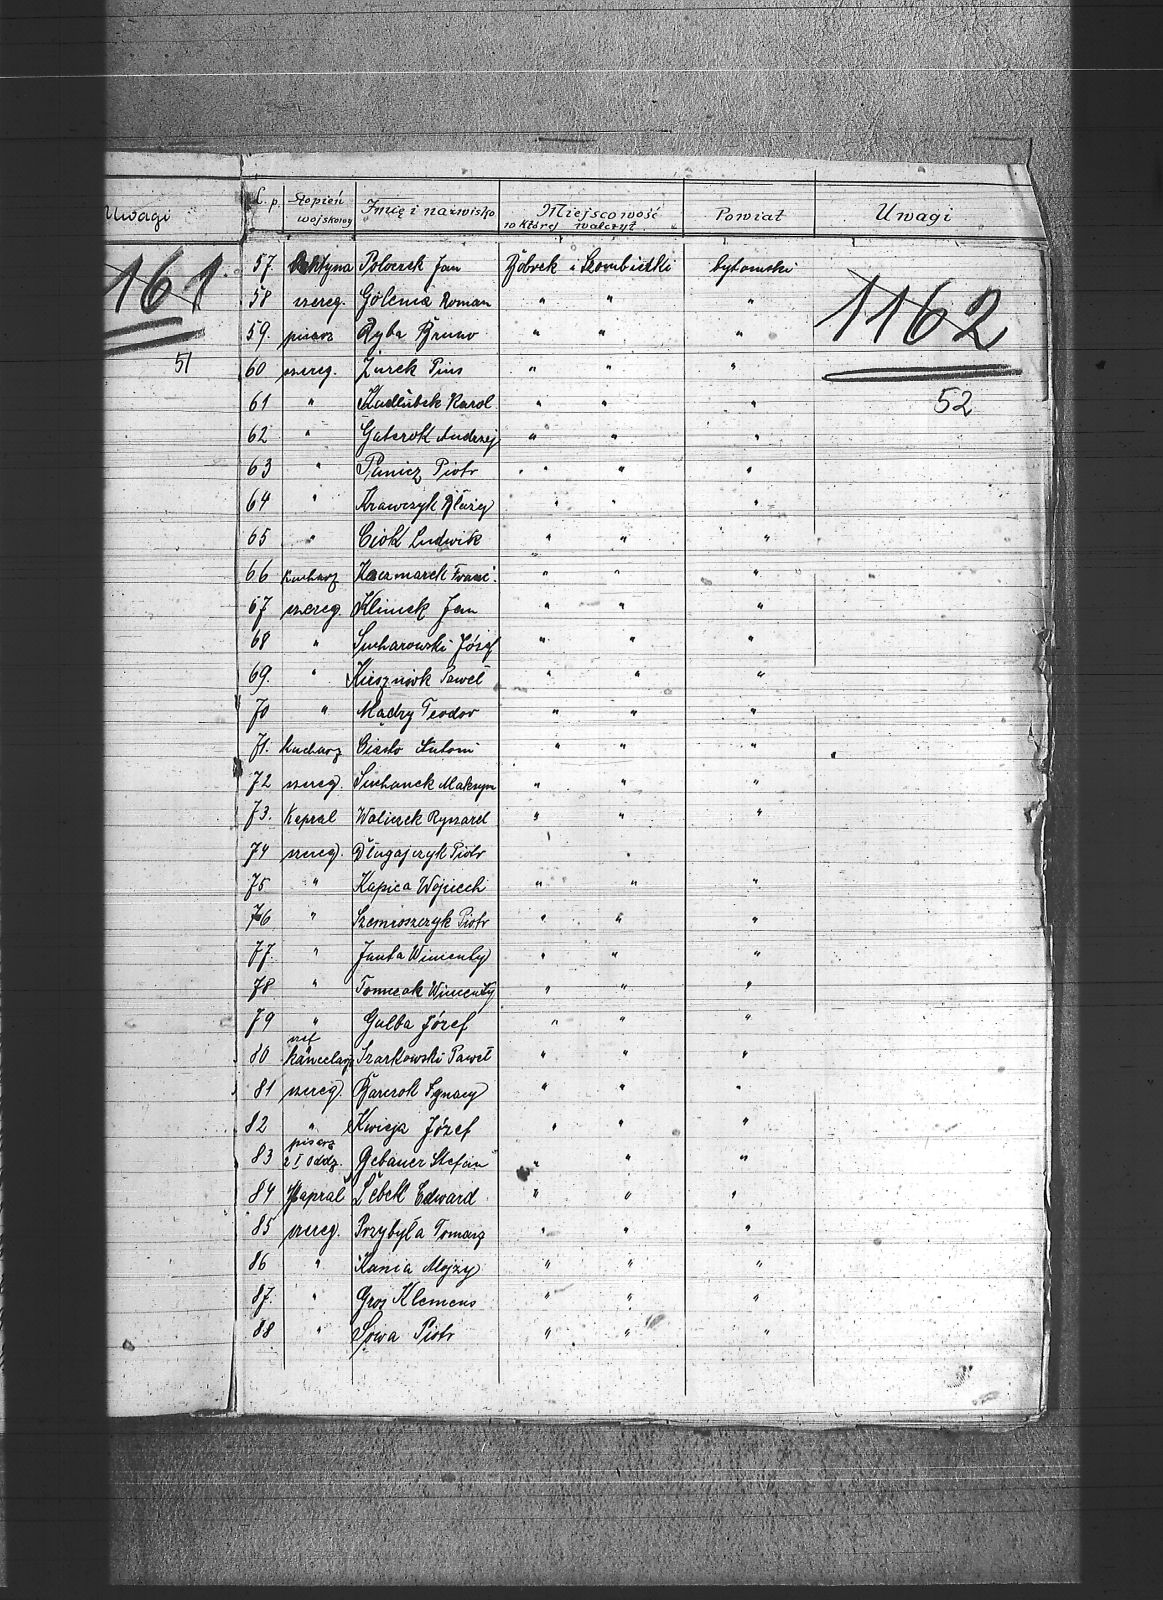 Uwagi
161
51
L. p. Stopień wojskowy Imię i nazwisko Miejscowość w której walczył Powiat Uwagi
1162
52
57. Poloczek Jan Bobrek i Szombierki bytomski
58 szereg. Golenia Roman " " "
59. pisarz Ryba Bruno " " "
60 szereg. Żurek Pius " " "
61 " Kadłubek Karol " " "
62 " Gatzrok Andrzej " " "
63 " Piotr " " "
64 " Krawczyk Błażej " " "
65 " Ciok Ludwik " " "
66 kucharz Kaczmarek Franc. " " "
67 szereg. Klimek Jan " " "
68 " Sucharowski Józef " " "
69. " Paweł " " "
70 " Mądry Teodor " " "
71. Kucharz Ciasto Antoni " " "
72 szereg. Suchanek Maksym " " "
73. Kapral Waliczek Ryszard " " "
74 szereg. Długajczyk Piotr
75 " Kapica Wojciech " " "
76 " Szemioszczyk Piotr " " "
77. " Janta Wincenty " " "
78. " Tomczak Wincenty " " "
79 " Galba Józef " " "
80 szef kancelarji Szarkowski Paweł " " "
81 szereg. Barczok Ignacy " " "
82 " Józef " " "
83 pisarz 2 I Oddz. Gebauer Stefan " " "
84 Kapral Łebek Edward " " "
85 szereg. Przybyła Tomasz " " "
86 " Kania Alojzy " " "
87. " Gros Klemens " " "
88 " Sowa Piotr " " "